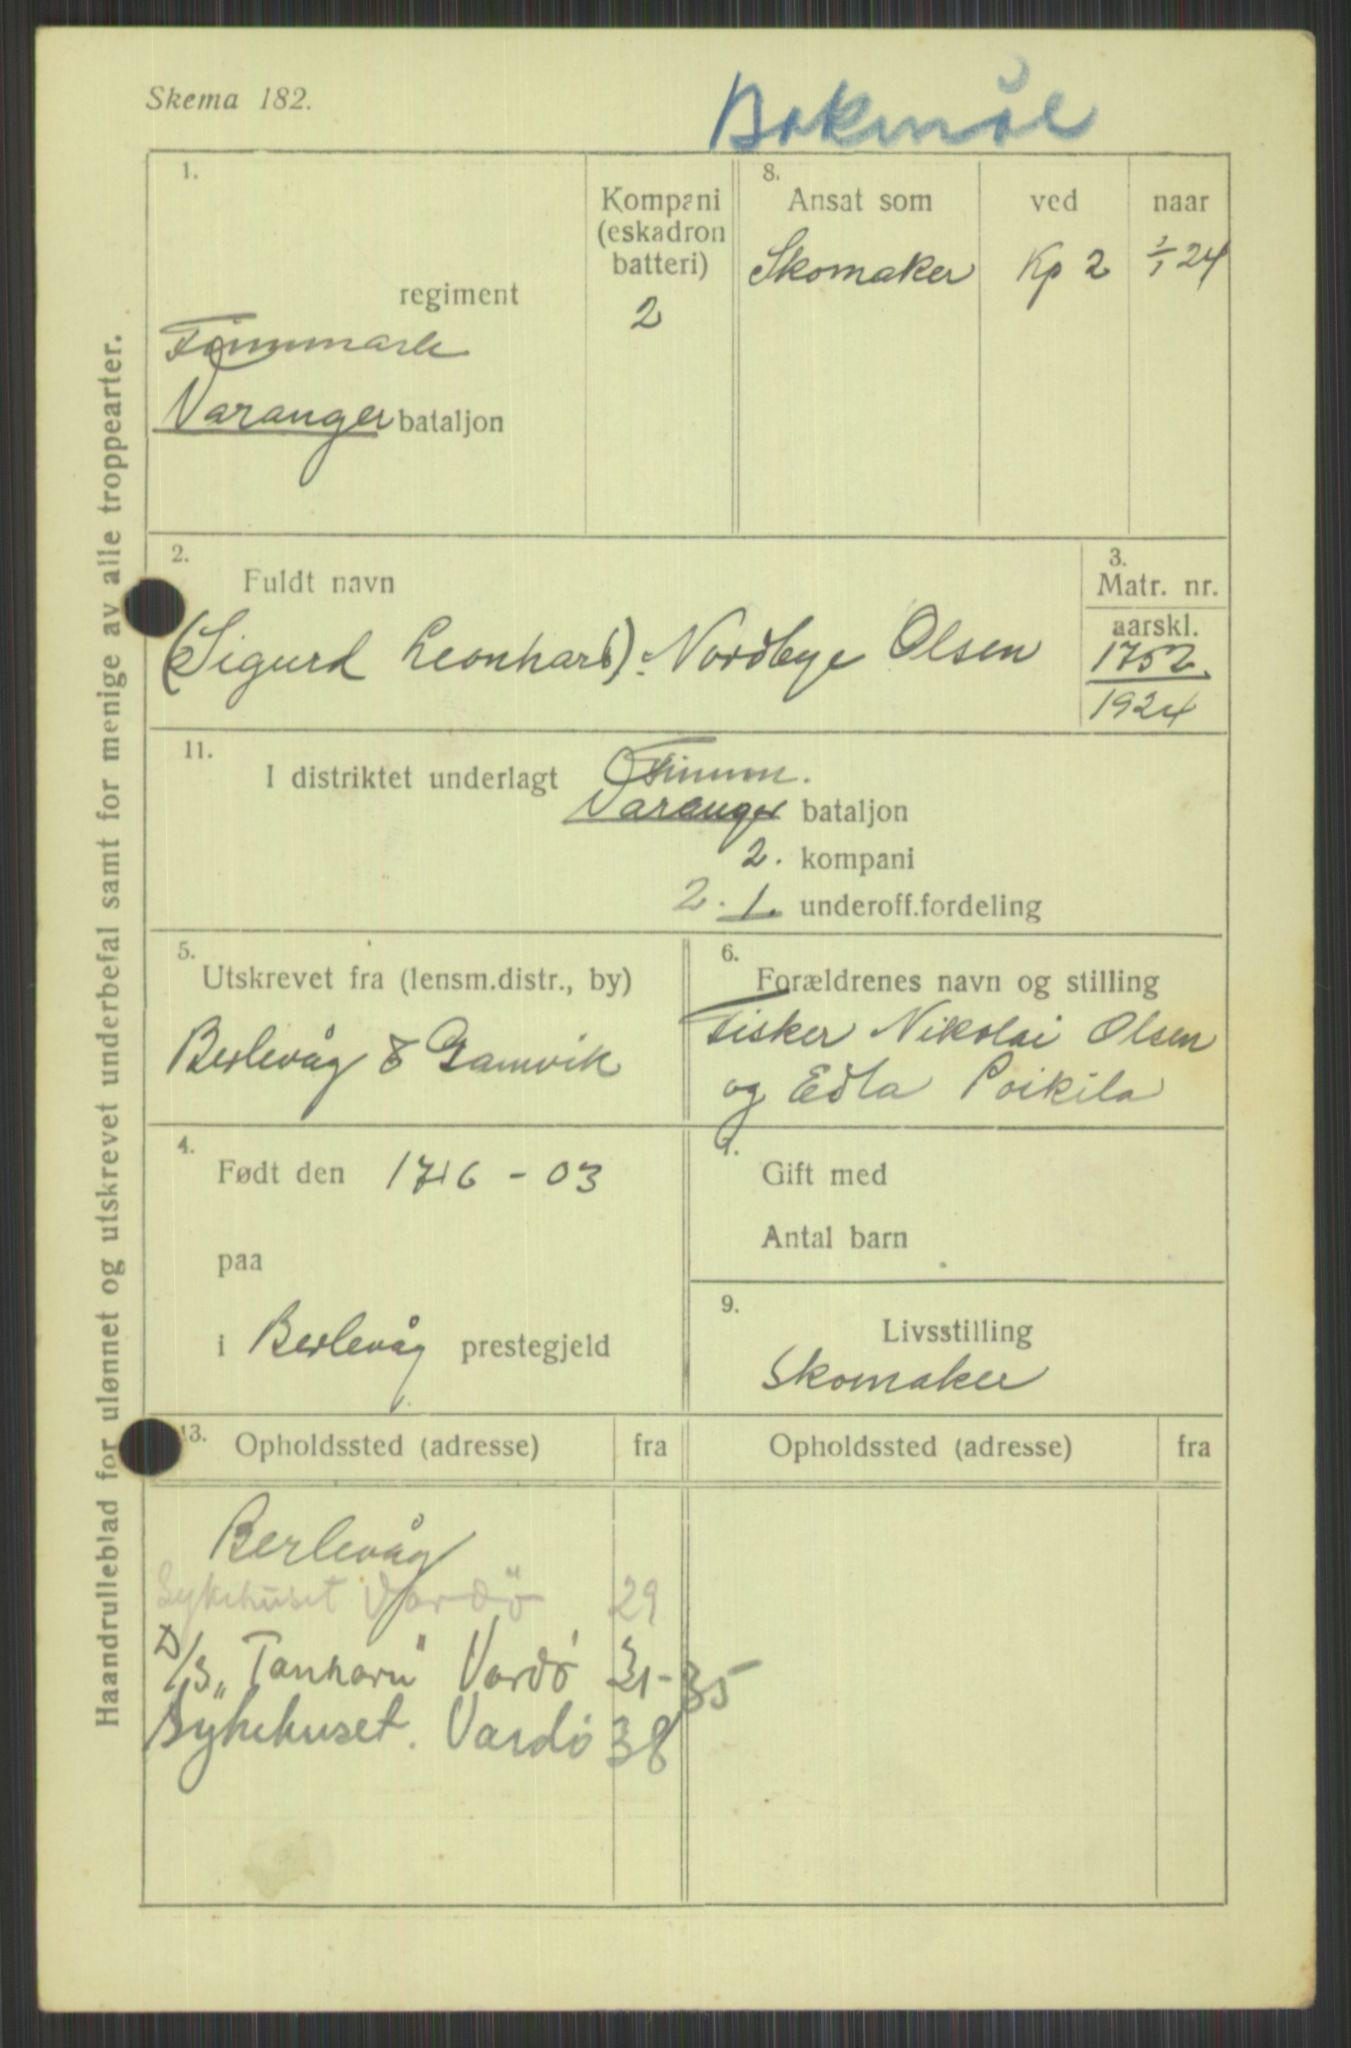 Skema 182.
Bokmål
1.
regiment
Finnmark
Varanger bataljon
Kompani
(eskadron
batteri)
2
8.
Ansat som
Skomaker
ved
Kp 2
naar
1/1 24
2.
Fuldt navn
(Sigurd Leonhard). Nordbye Olsen
3.
Matr. nr.
aarskl.
1752
1924
11.
I distriktet underlagt Finnm.
Varanger bataljon
2. kompani
2. 1. underoff.fordeling
5.
Utskrevet fra (lensm.distr., by)
Berlevåg & Gamvik
6.
Forældrenes navn og stilling
Fisker Nikolai Olsen
og Edla Poikila
4.
Født den 17/6 - 03
paa
i Berlevåg prestegjeld
7.
Gift med
Antal barn
9.
Livsstilling
Skomaker
13. Opholdssted (adresse) fra
Opholdssted (adresse) fra
Berlevåg
Sykehuset Vardö 29
D/S „Tanhorn" Vardö 31-35
Sykehuset. Vardö 38
Haandrulleblad for ulønnet og utskrevet underbefal samt for menige av alle troppearter.